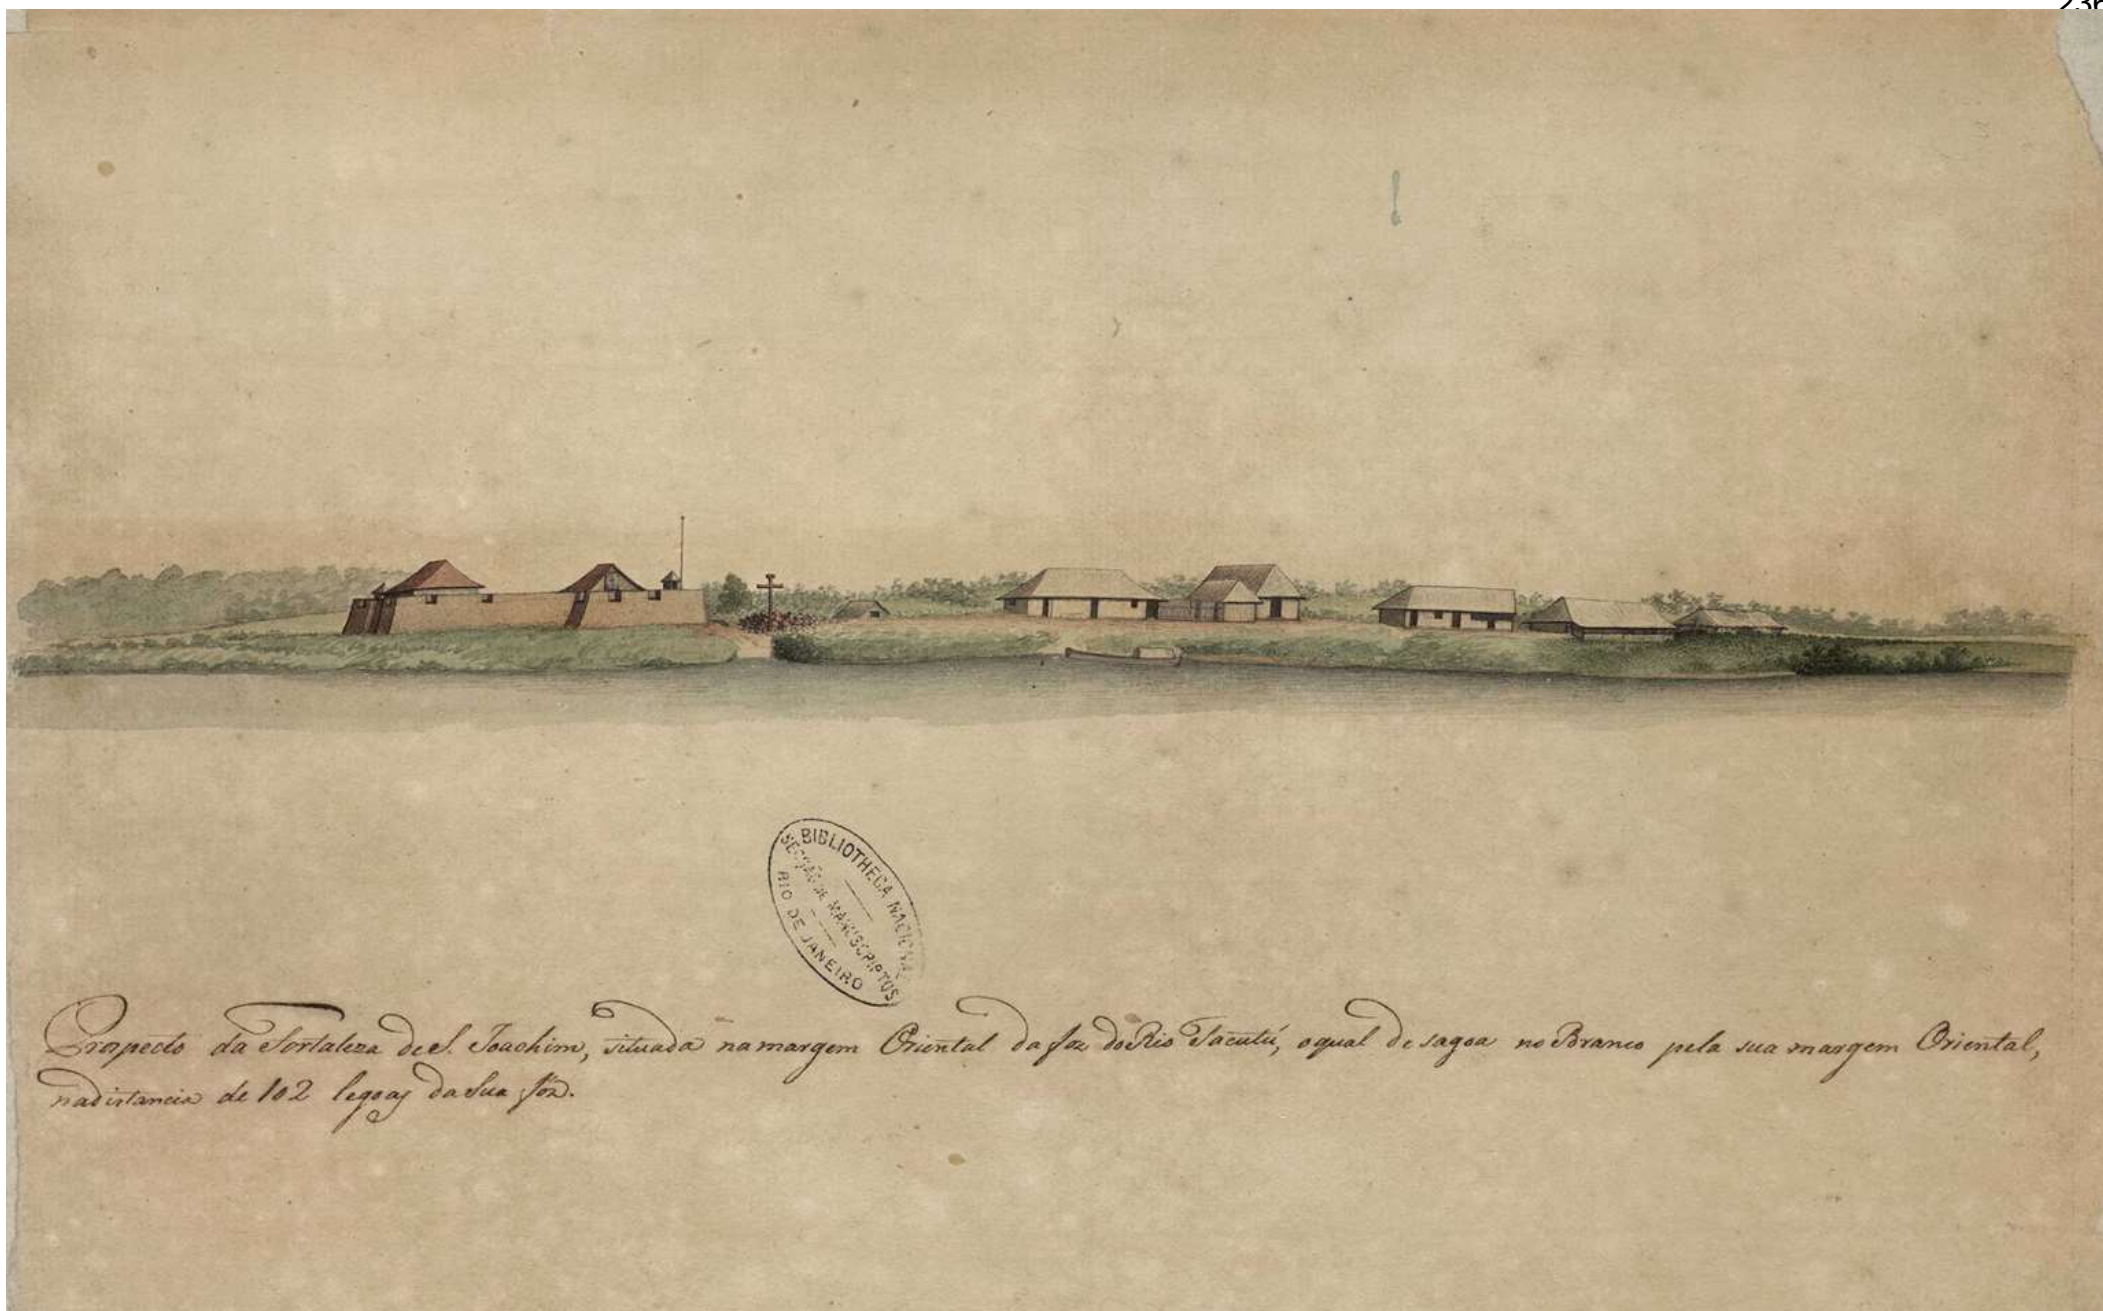 236
BIBLIOTHECA NACIONAL
SECÇÃO DE MANUSCRIPTOS
RIO DE JANEIRO
Prospecto da Fortaleza de S. Joachim, situada na margem Oriental da foz do Rio Tacutú, o qual desagoa no Branco pela sua margem Oriental,
na distancia de 102 legoas da sua foz.